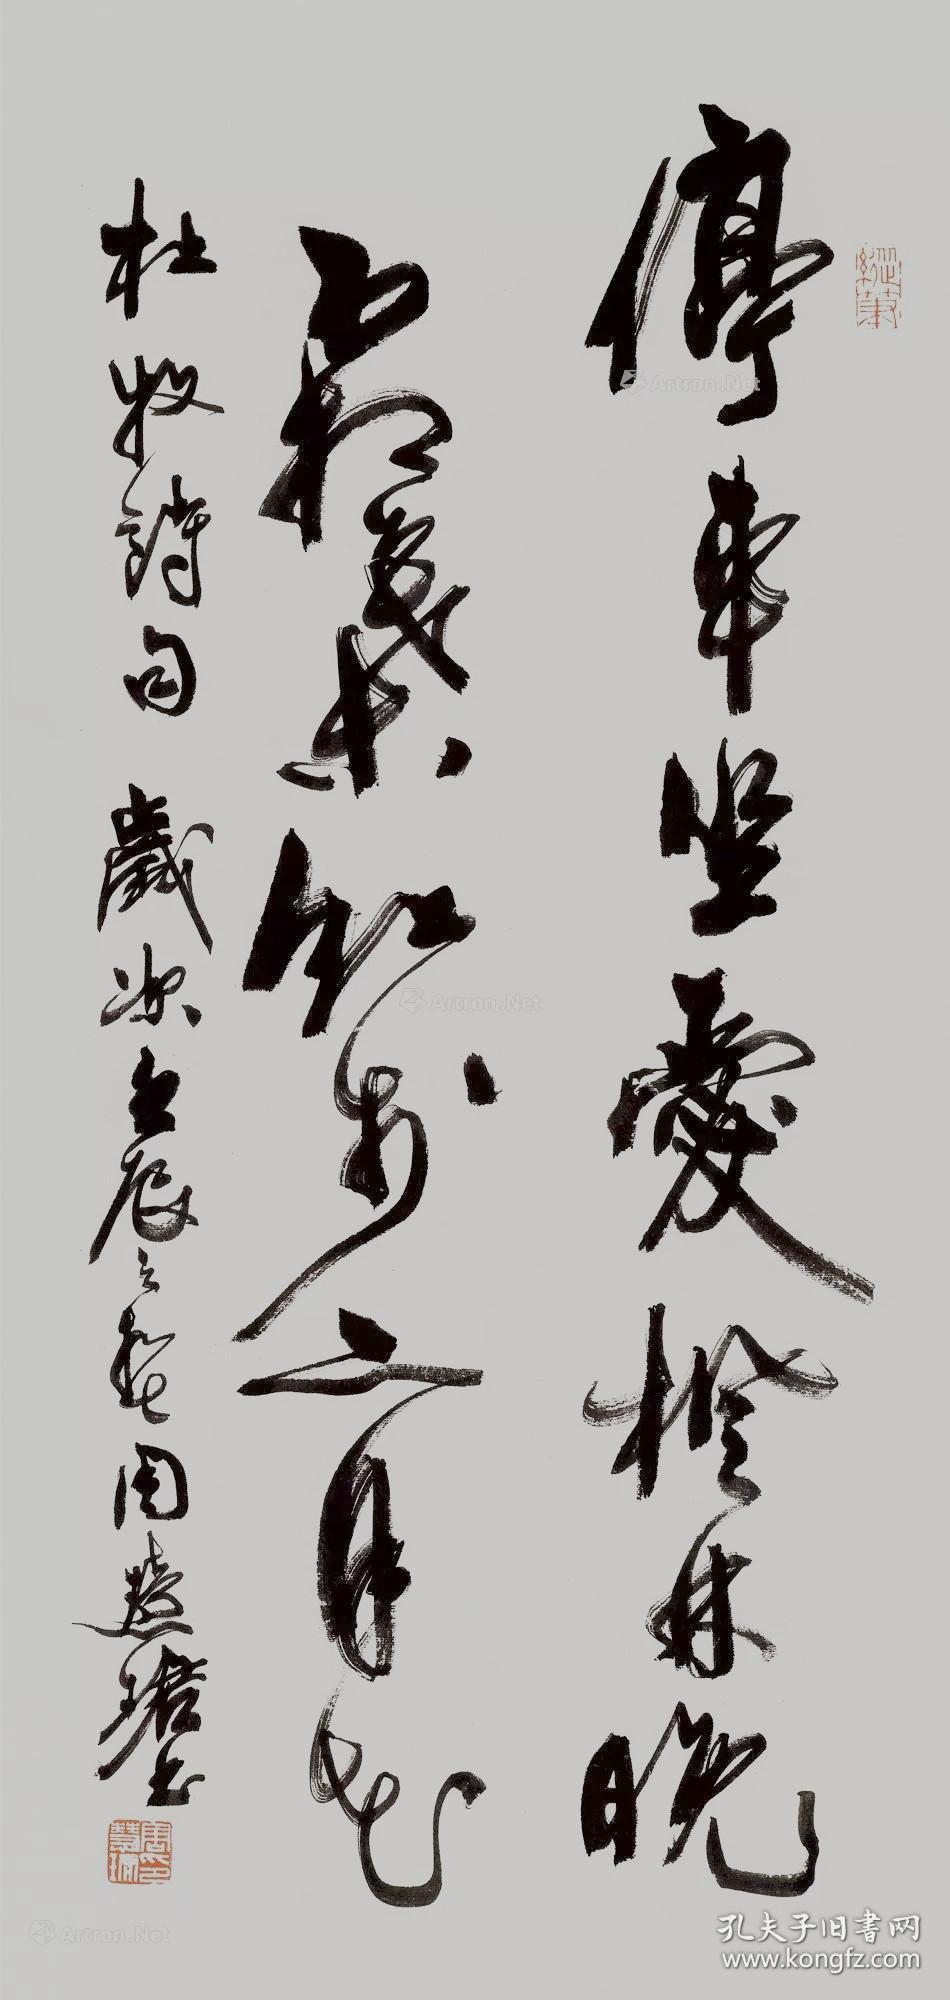 停車坐愛楓林晚
霜葉紅於二月花
杜牧詩句 歲次壬辰之秋 周慧珺書
周印慧珺
Artron.Net
Artron.Net
Artron.Net
孔夫子旧書网
www.kongfz.com